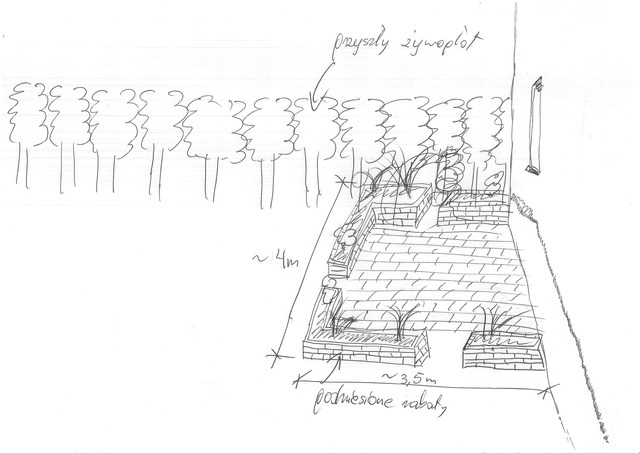 przyszły żywopłot
~ 4m
~ 3,5m
podniesione rabaty